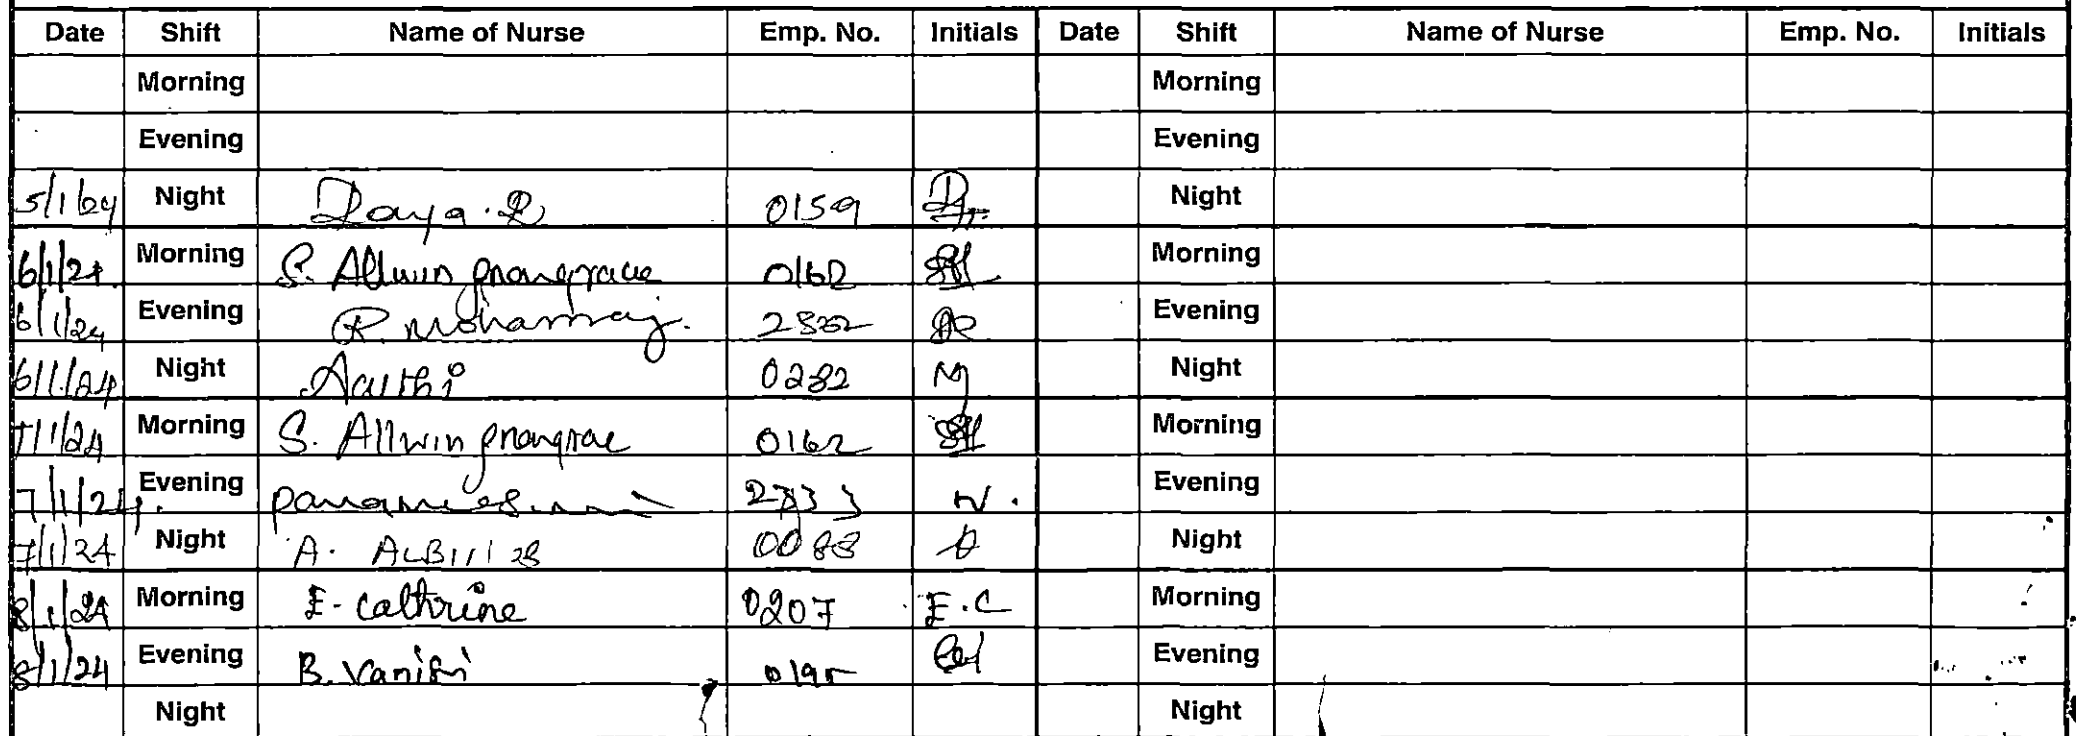 Date Shift Name of Nurse Emp. No. Initials Date Shift Name of Nurse Emp. No. Initials
Morning Morning
Evening Evening
5/1/24 Night Daya. R 0159 Night
6/1/24. Morning S. Allwin 0162 Morning
6/1/24 Evening R. Mohanraj. Evening
6/1/24 Night Aarthi 0282 Night
7/1/24 Morning S. Allwin 0162 Morning
7/1/24. Evening Evening
7/1/24 Night A. 0088 A Night
8/1/24 Morning E. Cathrine 0207 E.C Morning
8/1/24 Evening B. 0195 Evening
Night Night